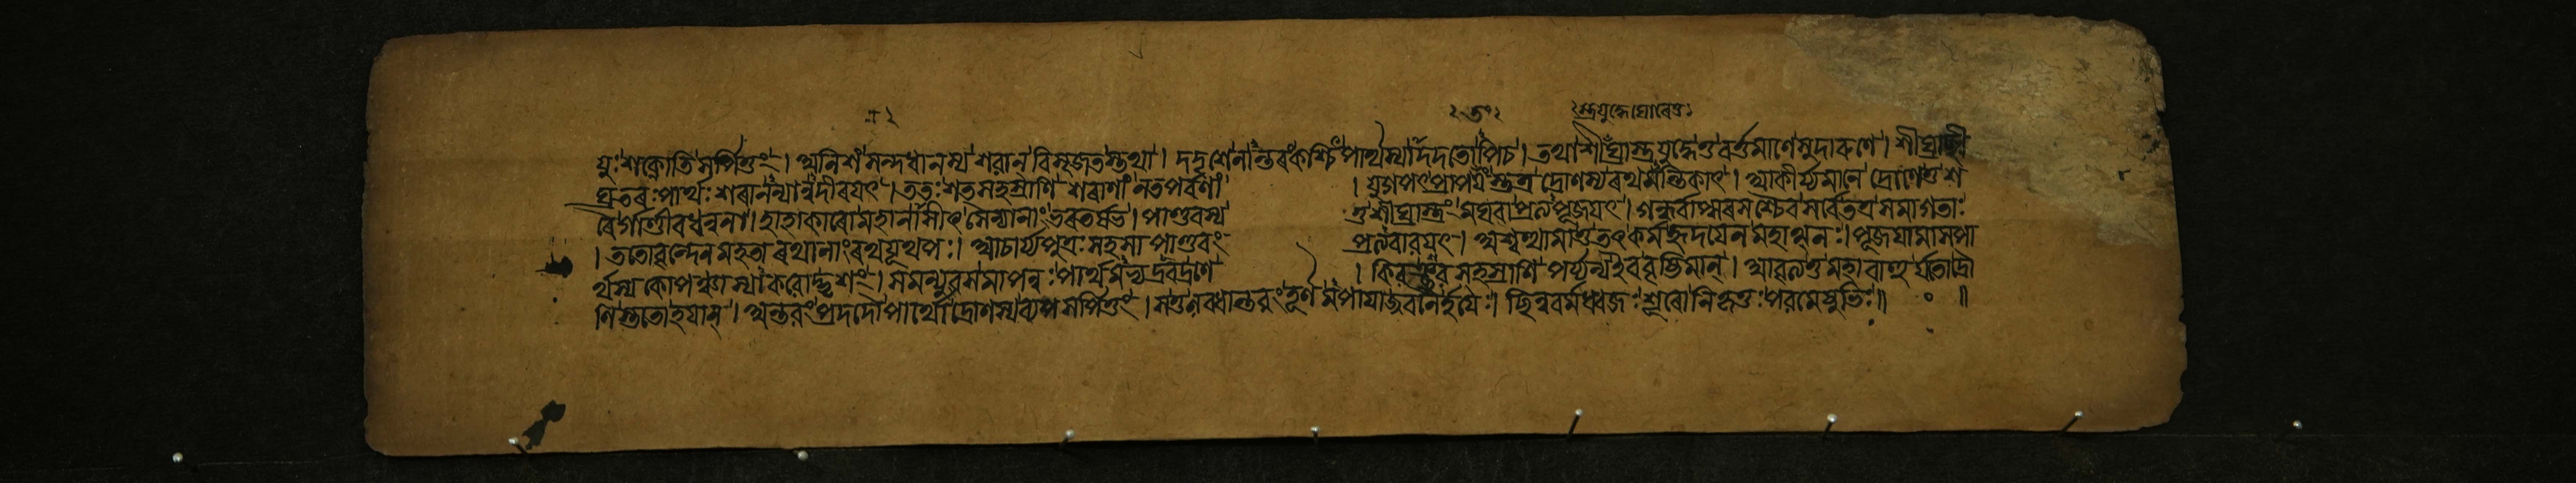 যুঃ শক্নোতি সর্পিতুং । অনিশং সন্দধানস্য শরান্ বিসৃজতস্তথা । দদৃশে নান্তরং কশ্চিৎ পার্থস্যাদদতোপি চ । তথা শীঘ্রাস্ত্রযুদ্ধে তু বর্ত্তমানে সুদারুণে । শীঘ্রাচ্ছী
ঘ্রতরং পার্থঃ শরানন্যানুদীরয়ৎ । ততঃ শতসহস্রাণি শরাণাং নতপর্বণাং । যুগপৎ প্রাপতংস্তত্র দ্রোণস্য রথমন্তিকাৎ । আকীর্য্যমাণে দ্রোণে তু শ
রৈর্গাণ্ডীবধন্বনা । হাহাকারো মহানাসীৎ সৈন্যানাং ভরতর্ষভ । পাণ্ডবস্য তু শীঘ্রাস্ত্রং মঘবা প্রত্যপূজয়ৎ । গন্ধর্বাপ্সরসশ্চৈব সর্বে তত্র সমাগতাঃ
। ততো বৃন্দেন মহতা রথানাং রথযূথপঃ । আচার্য্যপুত্রঃ সহসা পাণ্ডবং প্রত্যবারয়ৎ । অশ্বত্থামা তু তৎ কর্ম হৃদয়েন মহাত্মনঃ । পূজয়ামাস পা
র্থস্য কোপঞ্চাস্যাকরোদ্ভৃশং । স মন্যুবসমাপন্নঃ পার্থমভ্যদ্রবদ্রণে । কিরঞ্ছরসহস্রাণি পর্য্যন্য ইব বৃষ্টিমান্ । আবৃত্য তু মহাবাহুর্যতো দ্রৌ
ণিস্ততো হয়ান্ । অন্তরং প্রদদৌ পার্থো দ্রোণস্য ব্যপসর্পিতুং । স তু লব্ধান্তরং তূর্ণমপায়াজ্জবনৈর্হয়ৈঃ । ছিন্নবর্মধ্বজঃ শূরো নিকৃত্তঃ পরমেষুভিঃ ॥ ० ॥